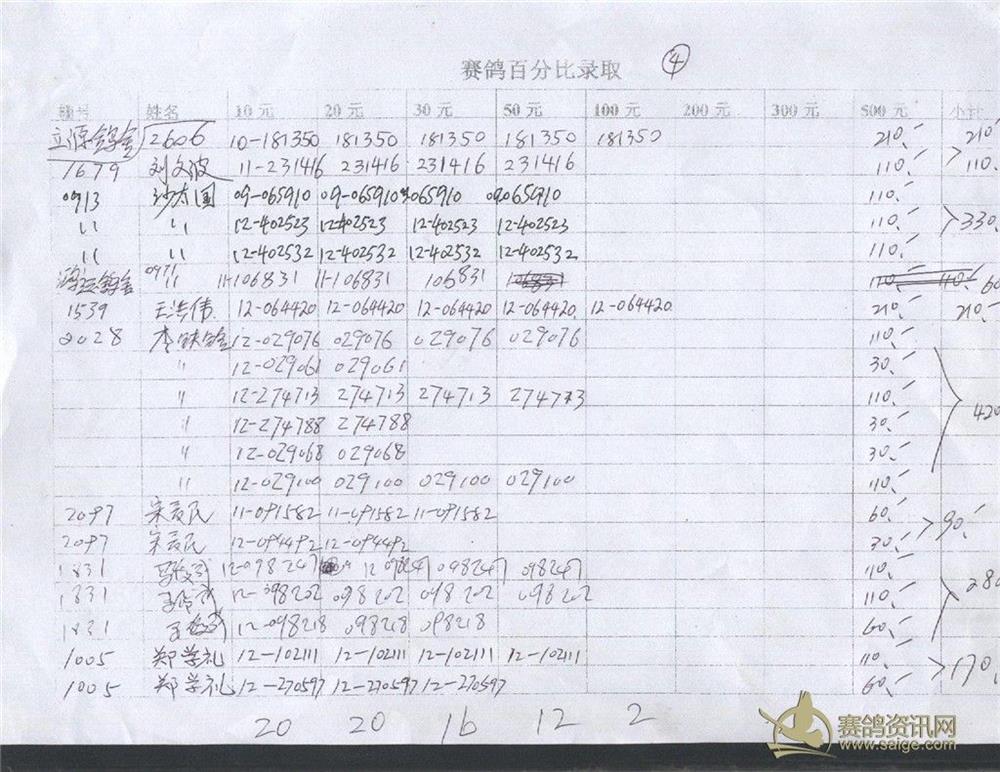 赛鸽百分比录取 ④
棚号 姓名 10元 20元 30元 50元 100元 200元 300元 500元 小计
2606 10-181350 181350 181350 181350 181350 210.- 210.-
1679 刘文波 11-231416 231416 231416 231416 110.- 110.-
0913 沙太国 09-065910 09-065910 065910 065910 110.-
〃 〃 12-402523 12-402523 12-402523 12-402523 110.- 330.-
〃 〃 12-402532 12-402532 12-402532 12-402532 110.-
0971 〃 11-106831 11-106831 106831 60
1539 王浩伟 12-064420 12-064420 12-064420 12-064420 12-064420 210.- 210.-
2028 12-029076 029076 029076 029076 110.-
〃 12-029061 029061 30.-
〃 12-274713 274713 274713 274713 110.- 420
〃 12-274788 274788 30.-
〃 12-029068 029068 30.-
〃 12-029100 029100 029100 029100 110.-
2097 11-091582 11-091582 11-091582 60.- 90.-
2097 12-094492 12-094492 30.-
1831 12-098247 12 098247 098247 098247 110.-
1831 12-098202 098202 098202 098202 110.- 280
1831 12-098218 098218 098218 60.-
1005 郑学礼 12-102111 12-102111 12-102111 12-102111 110.- 170.-
1005 郑学礼 12-270597 12-270597 12-270597 60.-
20 20 16 12 2
赛鸽资讯网
www.saige.com